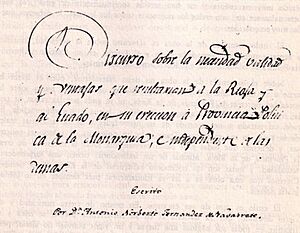 Discurso sobre la necesidad, utilidad
y ventajas que resultarian a la Rioja y
al Estado, en su ereccion à Provincia Politi
ca de la Monarquia, è independiente de las
demas.
Escrito
Por Dn. Antonio Norberto Fernandez de Navarrete.